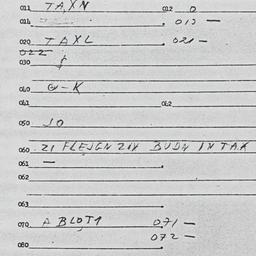 011 TAXN 012 0
014 013 —
020 TAXL 021 —
022
030 $
040 G-K
041 042
050 JO
060 21 FLEJGNZIN BUDN INTAK
061 —
062
063
070 A BLOT1 071 —
072 —
080